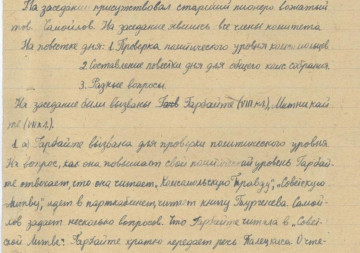 На заседании присутствовал старший пионер вожатый
тов. Самойлов. На заседание явились все члены комитета
На повестке дня: 1. Проверка политического уровня комсомольцев.
2. Составление повестки дня для общего комс. собрания.
3. Разные вопросы
На заседание были вызваны Гарбайте (VIII кл.),
(VII кл.).
1. а) Гарбайте вызвана для проверки политического уровня.
На вопрос, как она повышает свой политический уровень Гарбай-
те отвечает, что она читает „Комсомольскую Правду", „Советскую
Литву", ходит в парткабинет, читает книгу Самой-
лов задает несколько вопросов. Что Гарбайте читала в „Совет-
ской Литве". Гарбайте кратко передает речь Палецкиса О